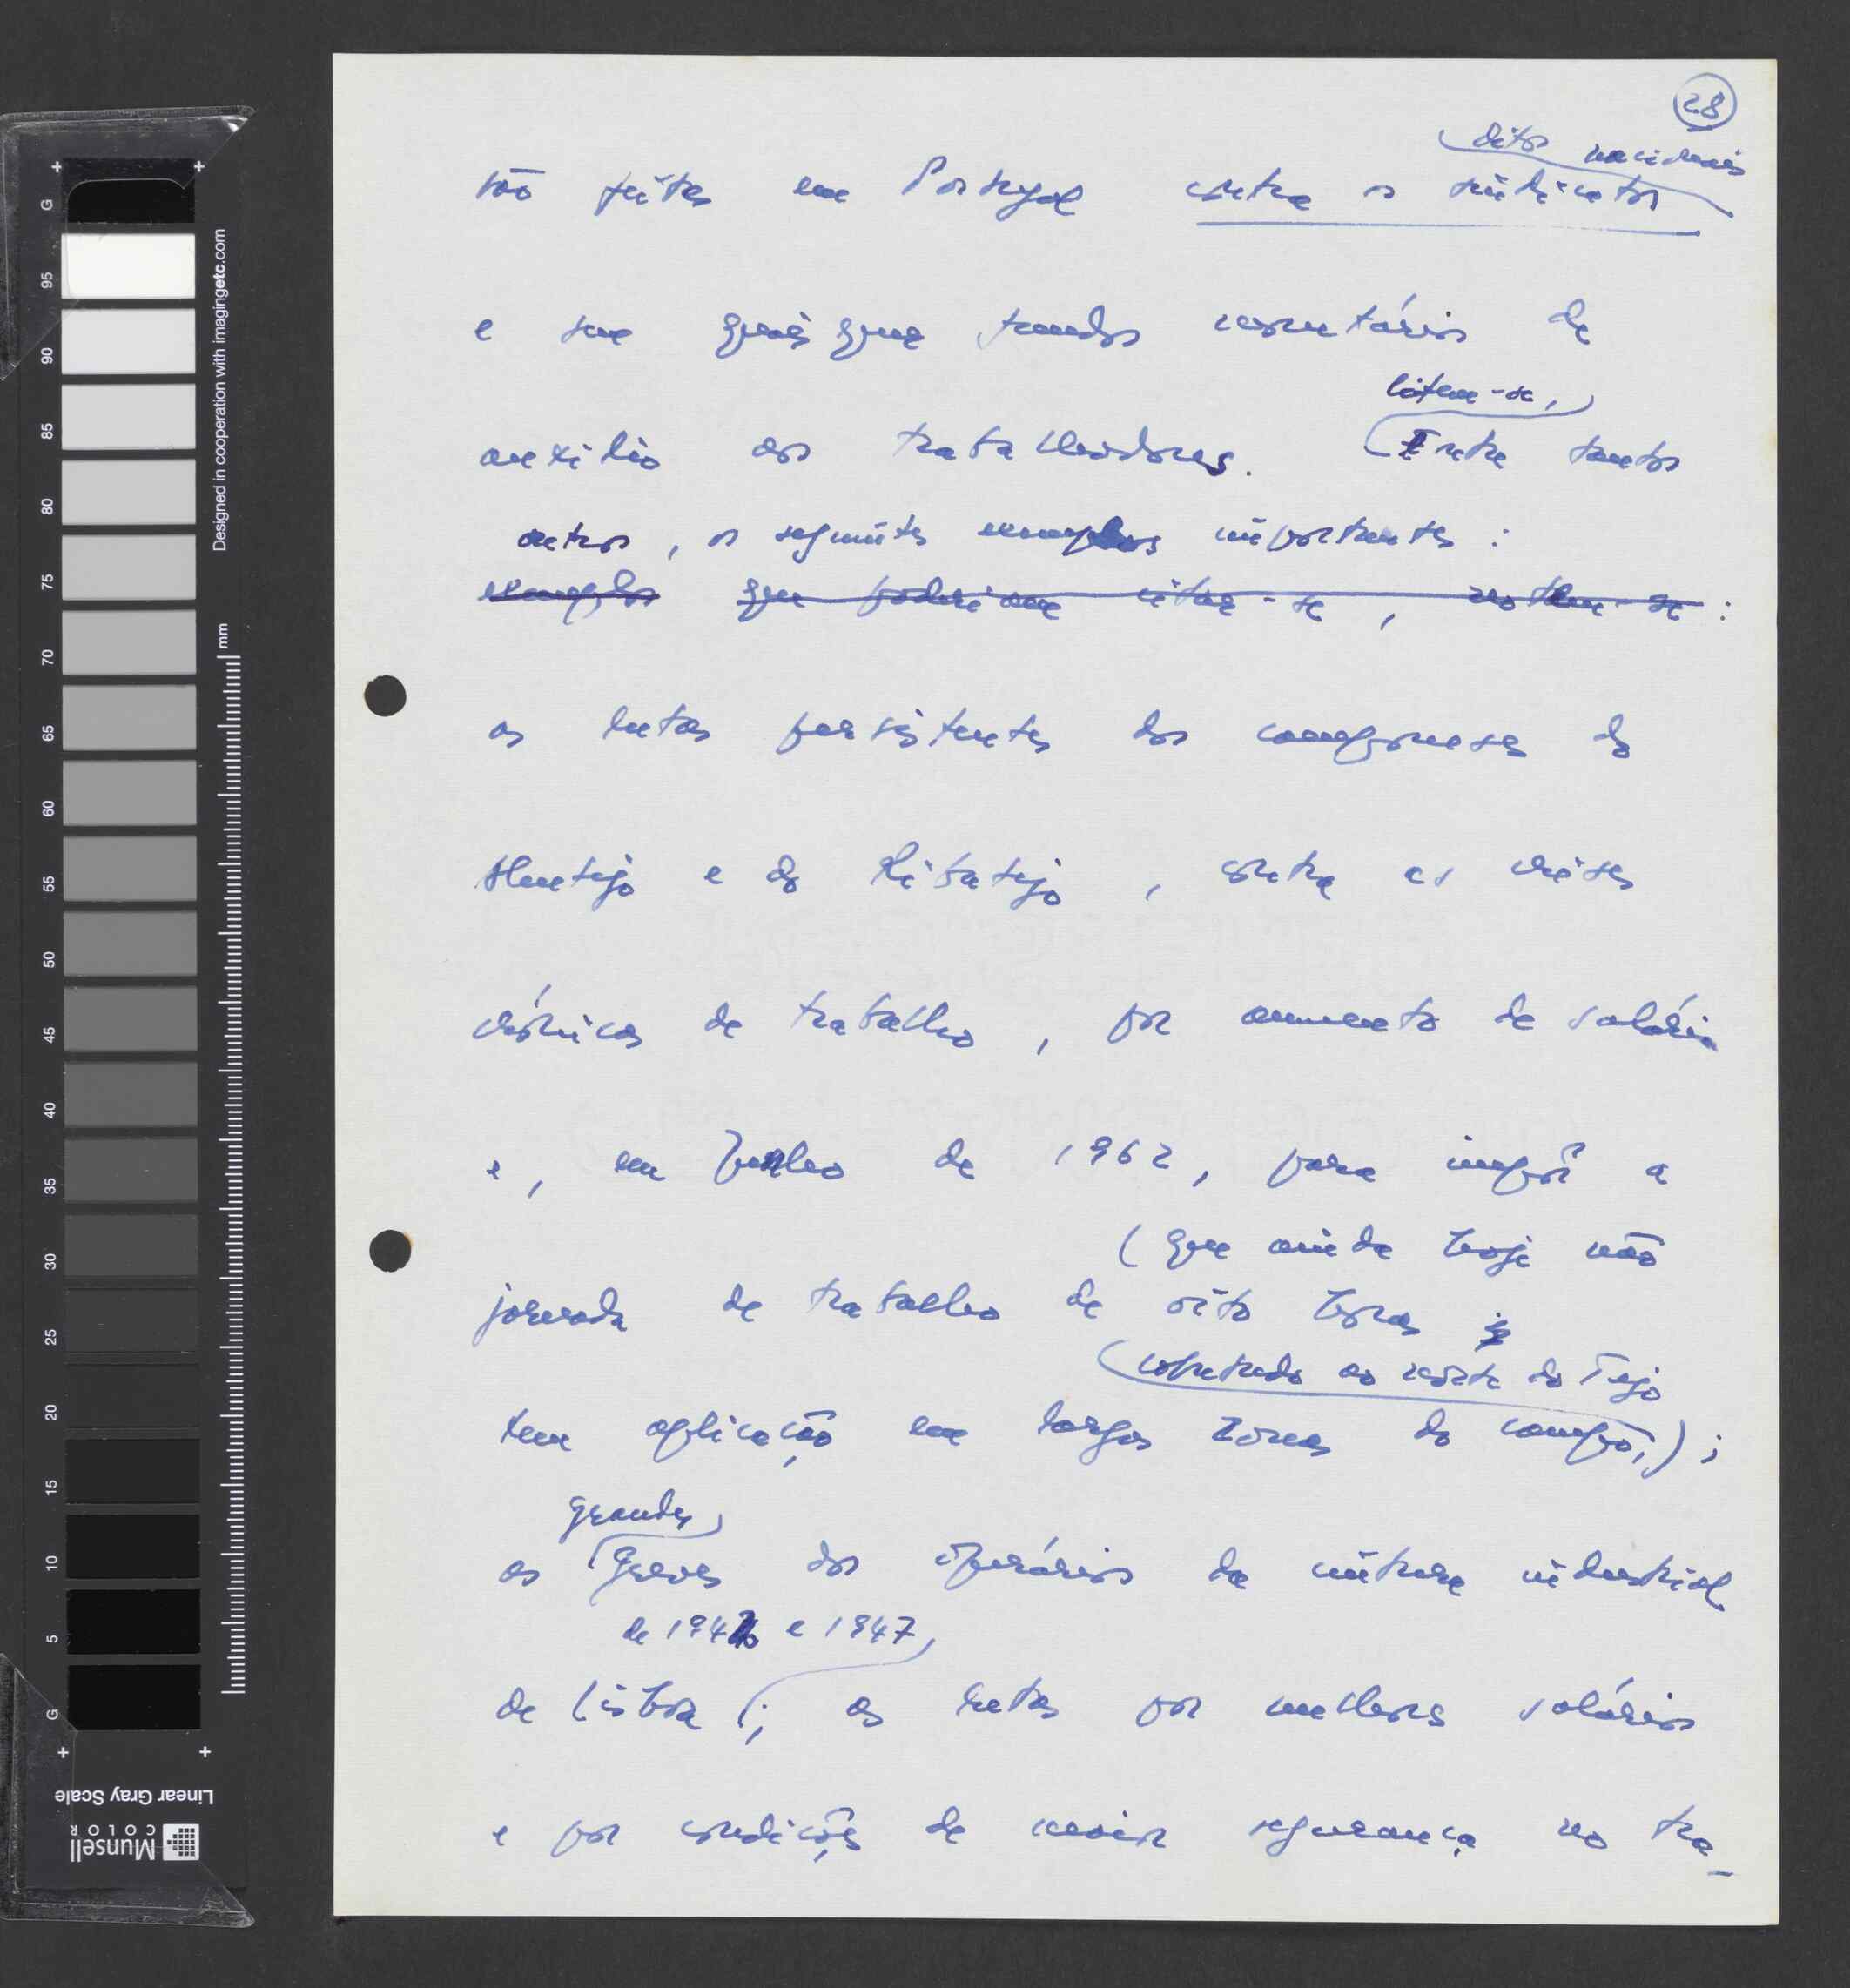 28
ditos nacionais
são feitas em Portugal contra os sindicatos
e sem quaisquer fundos monetários de
citem-se,
auxílio aos trabalhadores. Entre tantos
outros, os seguintes exemplos importantes :
exemplos que poderiam citar-se, notem-se :
as lutas persistentes dos camponeses do
Alentejo e do Ribatejo, contra as crises
crónicas de trabalho, por aumento de salário
e, em Junho de 1962, para impôr a
(que ainda hoje não
jornada de trabalho de oito horas
sobretudo ao norte do Tejo
tem aplicação em largas zonas do campo,) ;
grandes
as greves dos operários da cintura industrial
de 1942 e 1947,
de Lisboa ; as lutas por melhores salários
e por condições de maior segurança no tra-
Designed in cooperation with imagingetc.com
mm
G 95 90 85 80 75 70 65 60 55 50 45 40 35 30 25 20 15 10 5 G
Linear Gray Scale
Munsell
COLOR